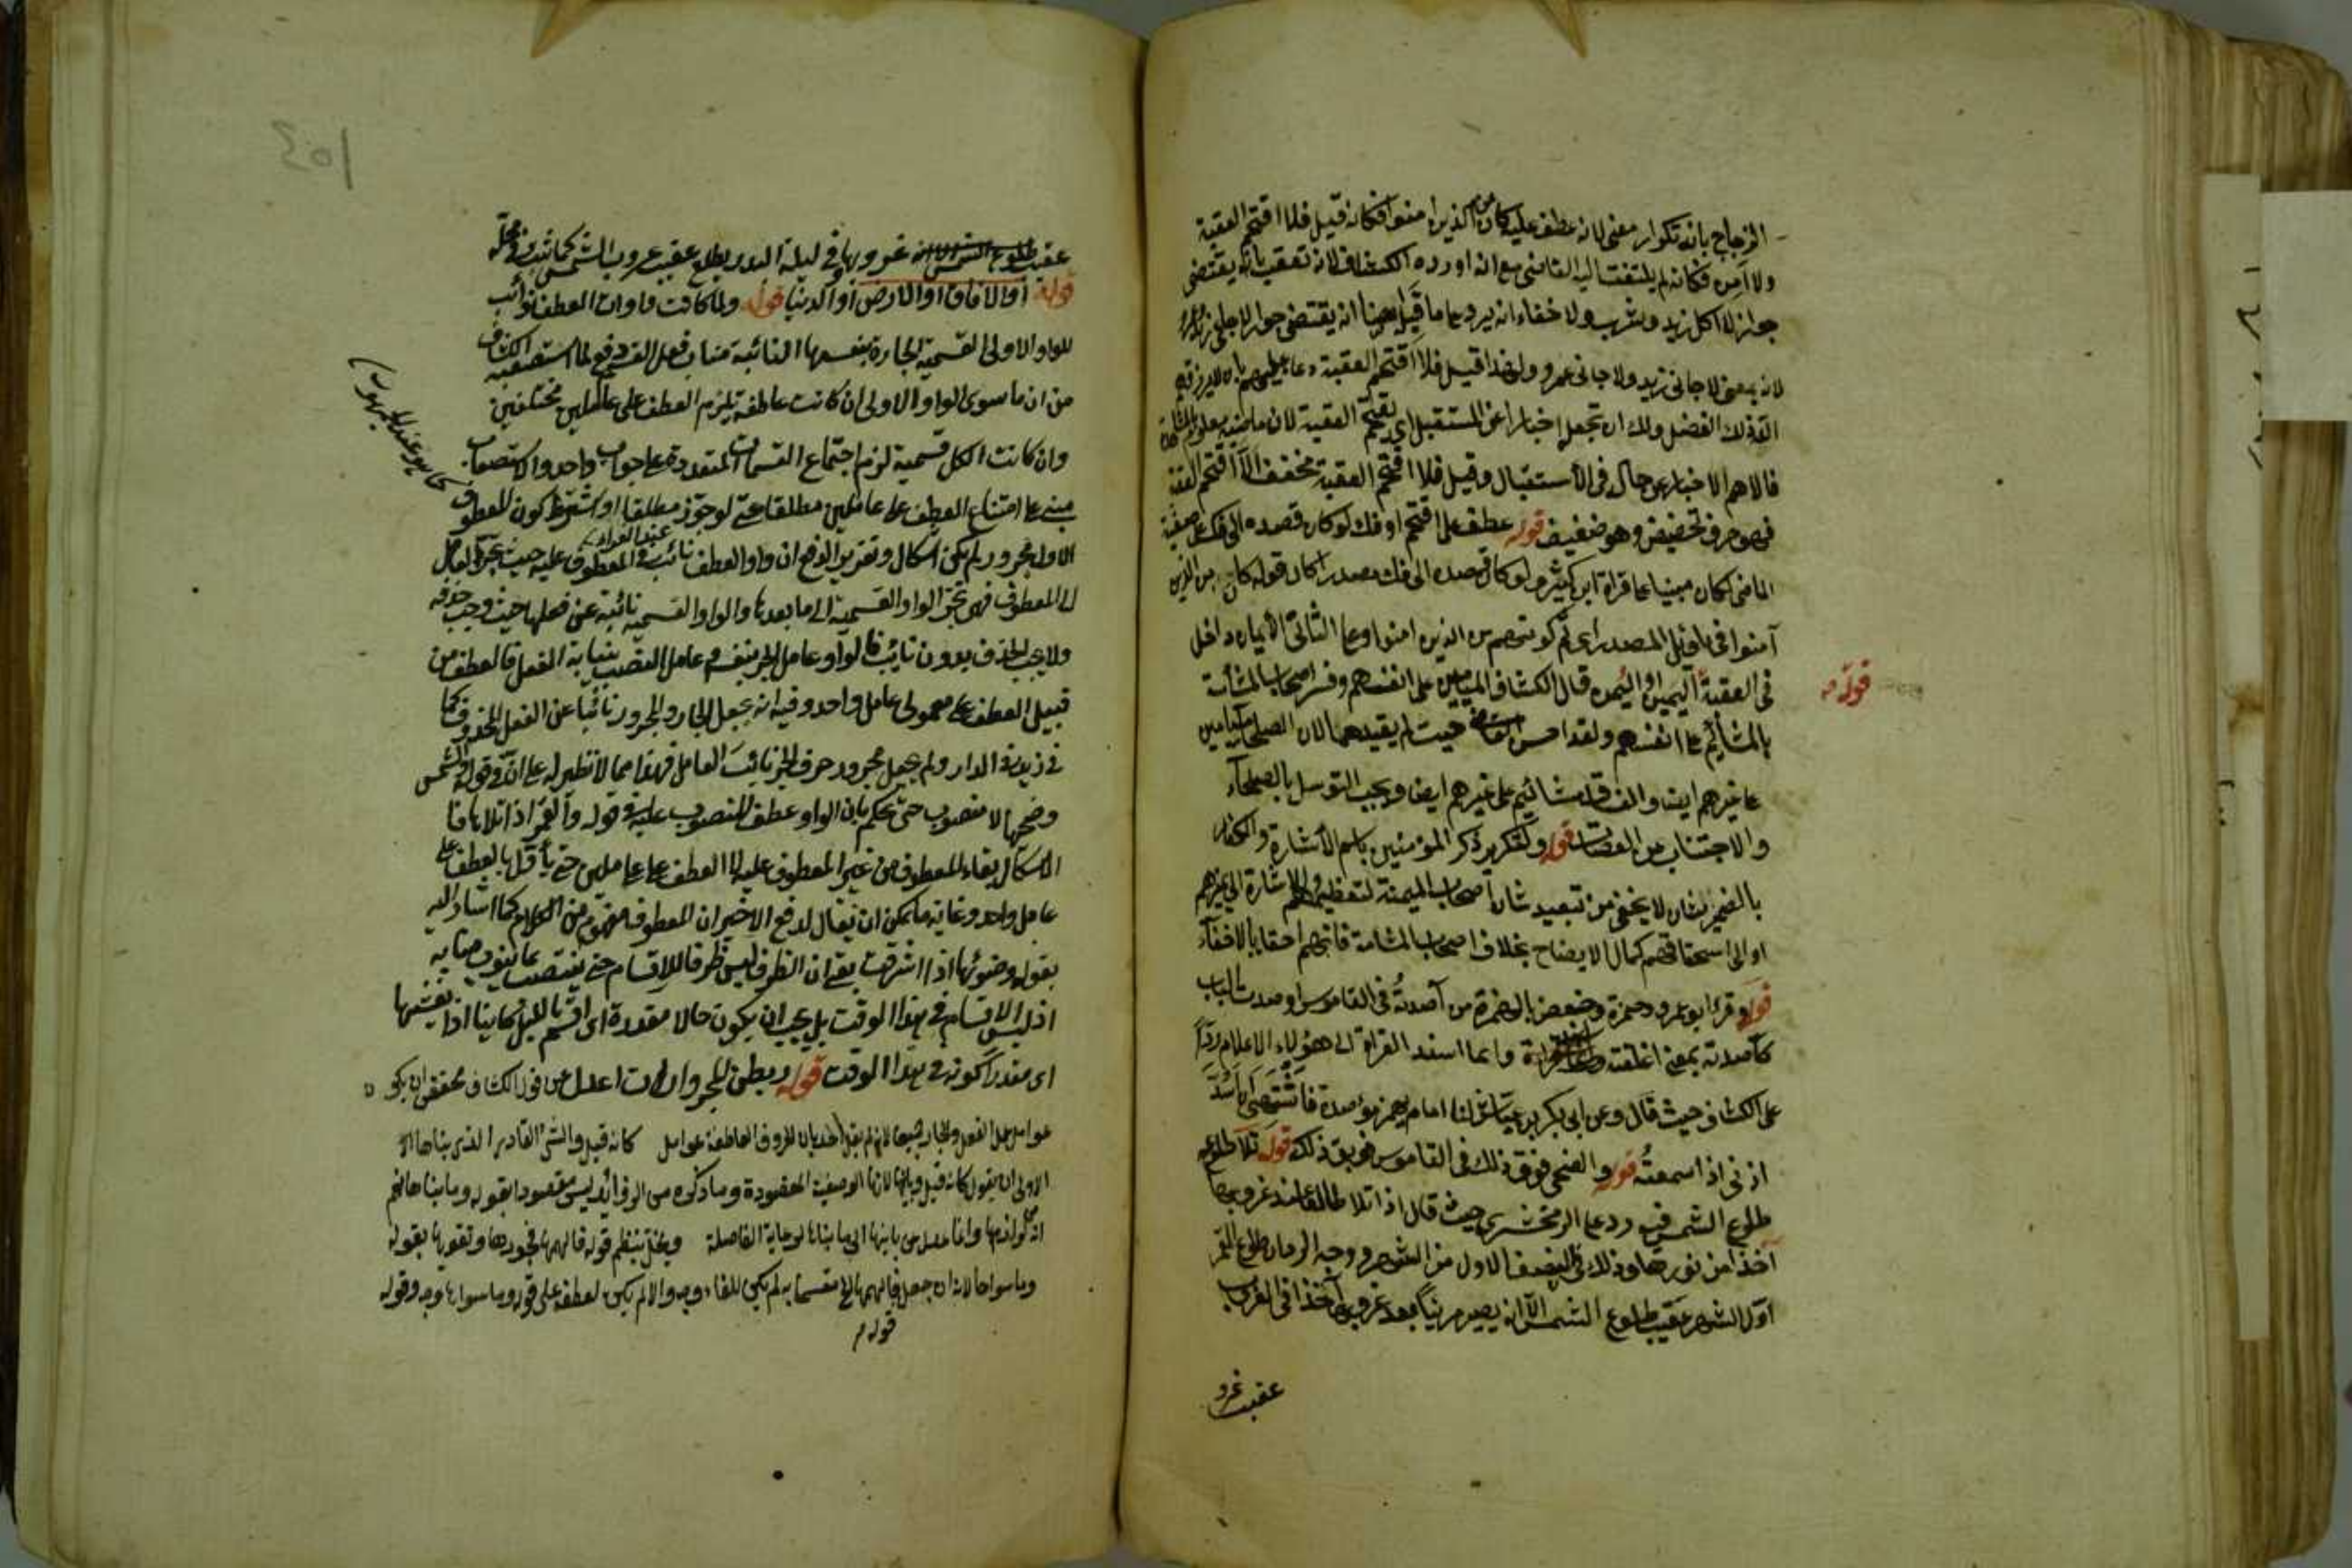 الزجاج بانه تكرار معنى لانه عطف عليه كان من الذين امنوا فكانه قيل فلا اقتحم العقبة
ولا آمن فكانه لم يلتفت اليه القاضى مع انه اورده الكشاف لانه تعقب بانه يقتضى
جواز لا اكل زيد وشرب ولا خفاء انه يرد على ما قيل ايضا انه يقتضى جواز لا جانى زيد وعمرو
لانه بمعنى لا جانى زيد ولا جانى عمرو ولهذا قيل فلا اقتحم العقبة دعا عليهم بان لا يرزقهم
الله ذلك الفضل ولك ان تجعل اخبارا عن المستقبل اى لا يقتحم العقبة لان ماضيه معلوم
فالاهم الاخبار عن حاله فى الاستقبال وقيل فلا اقتحم العقبة مخفف الا اقتحم العقبة
فهو حرف تحضيض وهو ضعيف قوله عطف على اقتحم او فك لو كان قصده الى فك على صيغة
الماضى لكان مبنيا على قراة ابن كثير ولو كان قصده الى فك مصدرا كان قوله كان من الذين
آمنوا فى تاويل المصدر اى ثم كونهم من الذين امنوا وعلى الثانى الايمان داخل
فى العقبة اليمين او اليمن قال الكشاف الميامين على انفسهم وفسر اصحاب المشأمة
بالمشائيم على انفسهم ولقد احسن القاضى حيث لم يقيدهما لان الصلحا ميامين
على غيرهم ايضا والفسقة مشائيم على غيرهم ايضا ويجب التوسل بالصلحاء
والاجتناب عن العصاة قوله ولتكرير ذكر المؤمنين باسم الاشارة والكفار
بالضمير شان لا يخفى من تبعيد شان اصحاب الميمنة لتعظيمهم والاشارة الى عزهم
او الى استحقاقهم كمال الايضاح بخلاف اصحاب المشامة فانهم احقا بالاخفاء
قوله وقرأ ابو عمرو وحمزة وحفص بالهمزة من آصدته فى القاموس اوصدت الباب
كآصدته بمعنى اغلقته وانما اسند القراة الى هؤلاء الاعلام ردا
على الكشاف حيث قال وعن ابى بكر بن عياش لنا امام يهمز مؤصدة فاشتهى ان اسد
اذنى اذا سمعته قوله والضحى فوق ذلك فى القاموس فويق ذلك قوله تلا طلوعه
طلوع الشمس فيه رد على الزمخشرى حيث قال اذا تلا طالعا عند غروبها
آخذا من نورها وذلك فى النصف الاول من الشهر ووجه الرد ان طلوع القمر
اول الشهر عقيب طلوع الشمس الا انه يصير مرئيا بعد غروبها آخذا فى الغروب
عقيب غرو
قوله م
عقيب غروبها فى ليلة البدر يطلع عقيب غروب الشمس كما ثبت فى محله
قوله او الافاق او الارض او الدنيا قوله ولما كانت واوات العطف نوائب
للواو الاولى القسمية الجارة بنفسها النائبة مناب فعل القسم دفع لما استصعبه الكشاف
من ان ما سوى الواو الاولى ان كانت عاطفة يلزم العطف على عاملين مختلفين
وان كانت الكل قسمية لزم اجتماع القسمات المتعددة على جواب واحد والاستصعاب
مبنى على امتناع العطف على عاملين مطلقا حتى لو جوز مطلقا او اشترط كون المعطوف
الاول مجرور لم يكن اشكال وتقرير الدفع ان واو العطف نائب المعطوف عليه حيث يجر العامل
الى المعطوف فهى تجر الواو القسمية الى ما بعدها والواو القسمية نائبة عن فعلها حيث وجب حذفه
ولا يجب الحذف بدون نائب فالواو عامل الجر بنفسه وعامل النصب بنيابة الفعل فالعطف من
قبيل العطف على معمولى عامل واحد وفيه انه يجعل الجار والمجرور نائبا عن الفعل المحذوف كما
فى زيد فى الدار ولم يجعل مجرور حرف الجر نائب العامل فهذا مما لا نظير له على ان فى قوله والشمس
وضحيها لا منصوب حتى يحكم بان الواو عطف المنصوب عليه فى قوله والقمر اذا تلاها فا
الاشكال بقاء المعطوف من غير المعطوف عليه لا العطف على عاملين حتى يأول بالعطف على
عامل واحد وغاية ما يمكن ان يقال لدفع الاخير ان المعطوف مفهوم من الكلام كما اشار اليه
بقوله وضوئها اذا اشرقت بقى ان الظرف ليس ظرفا للاقسام حتى ينتصب بما ينوب منابه
اذ ليس الاقسام فى هذا الوقت بل يجب ان يكون حالا مقدرة اى اقسم بالليل كاينا اذا يغشيها
اى مقدرا كونه فى هذا الوقت قوله وربطن المجرورات اعدل من قول الكشاف فحققن ان يكن
عوامل عمل الفعل والجار جميعا لانه لم يقل احد بان الحروف العاطفة عوامل كانه قيل والشئ القادر الذى بناها الا
الاولى ان يقول كانه قيل وبانيها لانها الوصفية المقصودة وما ذكره من الزوائد ليس مقصودا بقوله وما بناها نعم
انه لوازمها وانما عدل من بانيها الى ما بناها لرعاية الفاصلة ويخل بنظم قوله فالهمها فجورها وتقويها بقوله
وما سواها لانه ان جعل فالهمها الخ مقسما به لم يكن للفاء وجه والا لم يكن لعطفه على قوله وما سواها وجه وقوله
قوله م